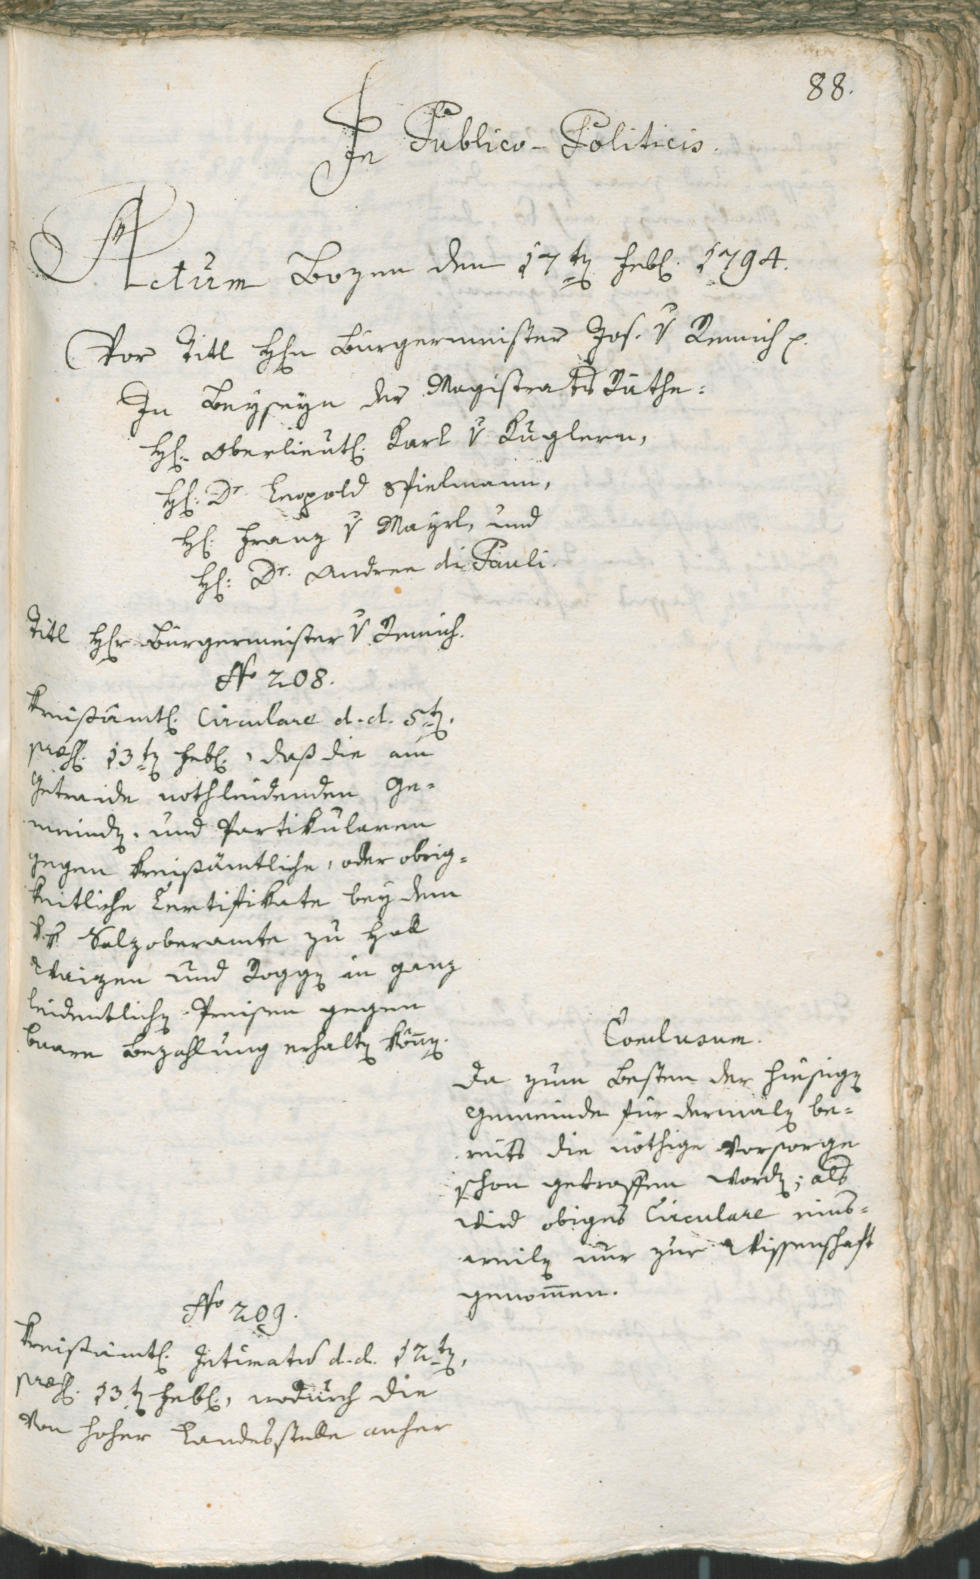 88.
In Publico-Politicis.
Actum Bozen den 17ten Febr. 1794.
Vor Titl Hhn Bürgermeister Jos. v Remich p.
In Beyseyn der Magistrats Räthe:
Hl. Oberlieutl. Karl v Kuglern,
Hl. Dr. Leopold Spielmann,
Hl. Franz v Mayrl, und
Hl: Dr. Andree di Pauli.
Titl Hhr Bürgermeister v Remich.
No 208.
Kreißämtl. Circulare d.d. 5ten,
præs. 13ten Febr., daß die am
Getraide nothleidenden Ge-
meinden, und Partikularen
gegen kreißämtliche, oder obrig-
keitliche Certifikate bey dem
k.k. Salzoberamte zu Hall
Waizen und Roggen in ganz
leidentlichen Preisen gegen
baare Bezahlung erhalten können.
Conclusum.
Da zum Besten der hiesigen
Gemeinde für dermalen be-
reits die nöthige Vorsorge
schon getroffen worden; als
wird obiges Circulare eins-
weilen nur zur Wissenschaft
genommen.
No 209.
Kreißämtl. Intimatum d.d. 12ten,
præs. 13ten Febr., wodurch die
von hoher Landesstelle anher